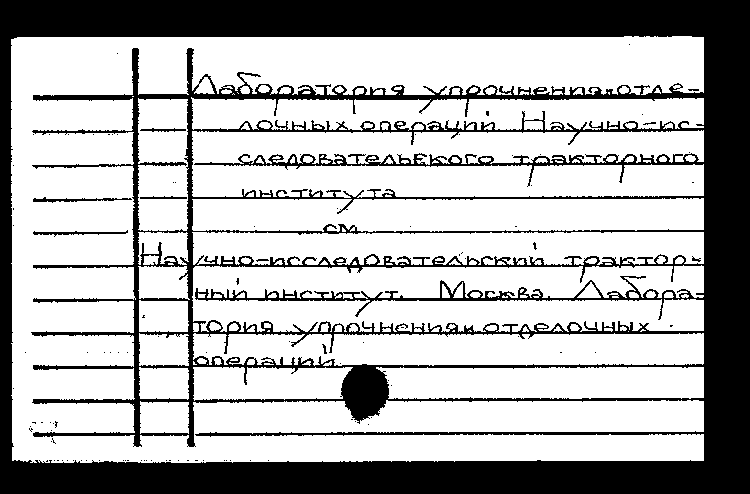 Лаборатория упрочнения и отде-
лочных операций Научно-ис-
следовательского тракторного
института
см
Научно-исследовательский трактор-
ный институт. Москва. Лабора-
тория упрочнения и отделочных
операций